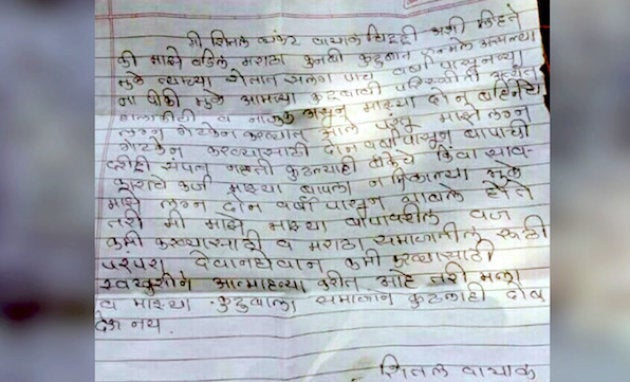 मी शितल व्यंकट वायाळ चिठ्ठी अशी लिहते
की माझे वडिल मराठा कुनबी कुटुंबात जन्मले असल्या
मुळे त्याच्या शेतात सलग पाच वर्षा पासूनच्या
ना पीकी मुळे आमच्या कुटुंबाची परिस्थीती अत्यंत
हालाकीची व नाजुक असून माझ्या दोन बहिनींचे
लग्न गेटकेन करण्यात आले परंतू माझे लग्न
गेटकेन करण्यासाठी दोन वर्षापासून बापाची
दलीद्री संपत नव्हती कुठल्याही बँकेचे किंवा साव-
काराचे कर्ज माझ्या बापाला न मिळाल्या मुळे
माझे लग्न दोन वर्षा पासून थांबले होते
तरी मी माझे माझ्या बापावरील वज
कमी करण्यासाठी व मराठा समाजातील रूढी
परंपरा देवानघेवान कमी करण्यासाठी
स्वखुशीने आत्माहत्या करीत आहे तरी मला
व माझ्या कुटुंबाला समाजाने कुठलाही दोष
देऊ नये.
शितल वायाळ